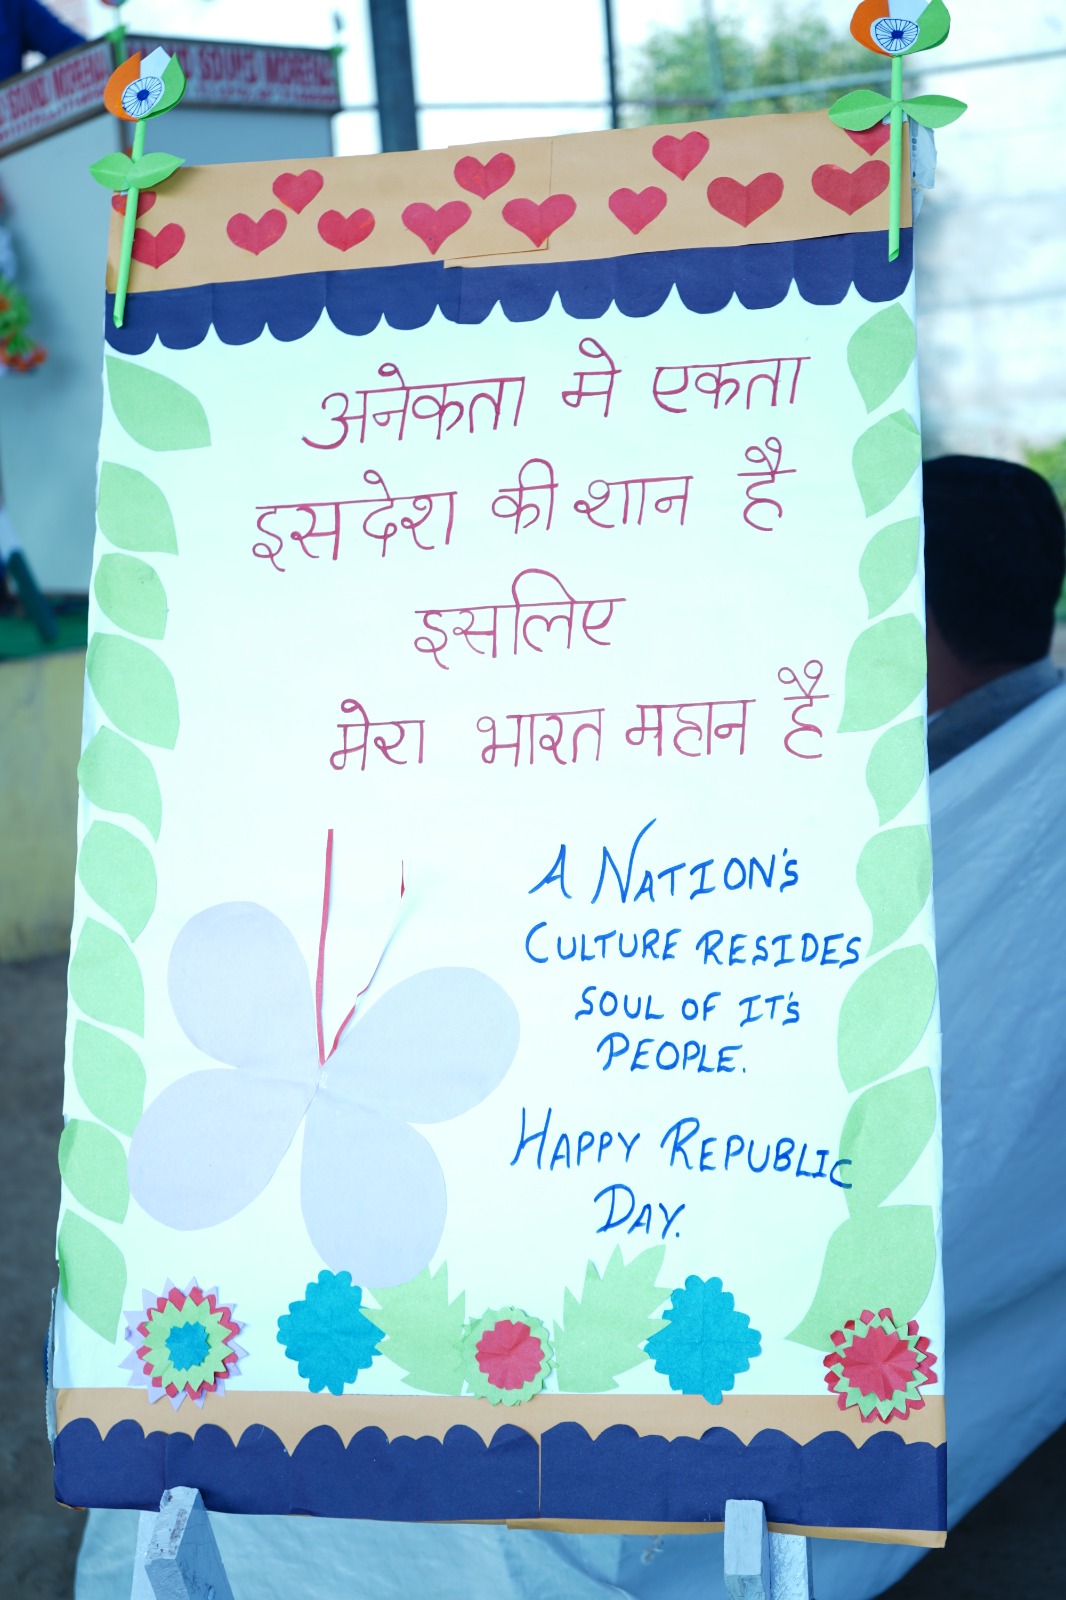 SOUND MOREN
अनेकता मे एकता
इस देश की शान है
इसलिए
मेरा भारत महान है
A NATION'S
CULTURE RESIDES
SOUL OF IT'S
PEOPLE.
HAPPY REPUBLIC
DAY.